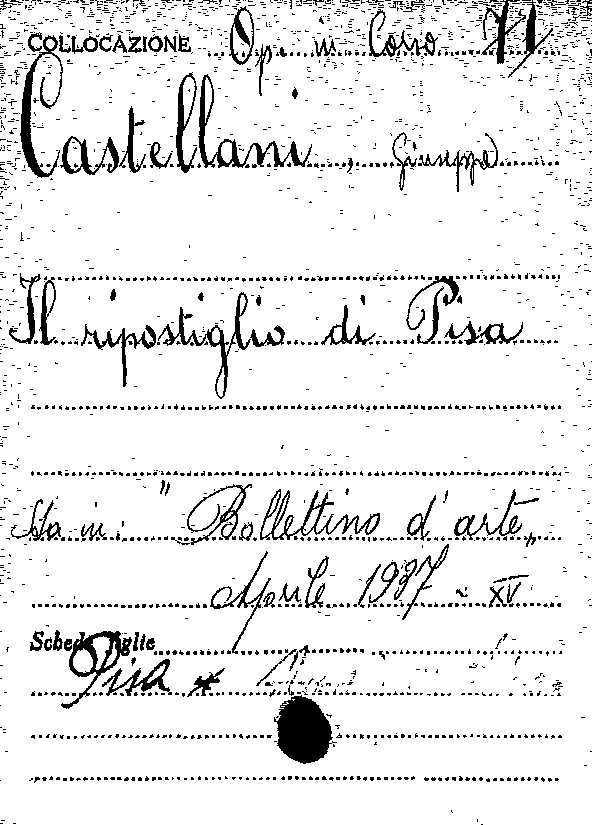 COLLOCAZIONE Op. in Corso 71
Castellani, Giuseppe
Il ripostiglio di Pisa
Sta in: "Bollettino d'arte„
Aprile 1937 - XV
Schede figlie
Pisa *